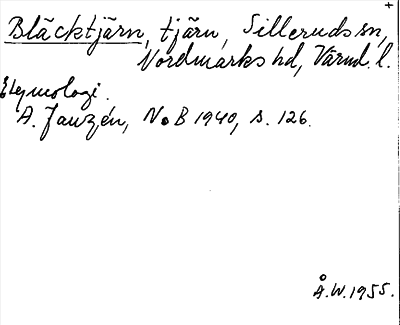 +
Bläcktjärn, tjärn, Silleruds sn,
Nordmarks hd, Värml. l.
Etymologi.
A. Janzén, NoB 1940, s. 126.
Å.W. 1955.